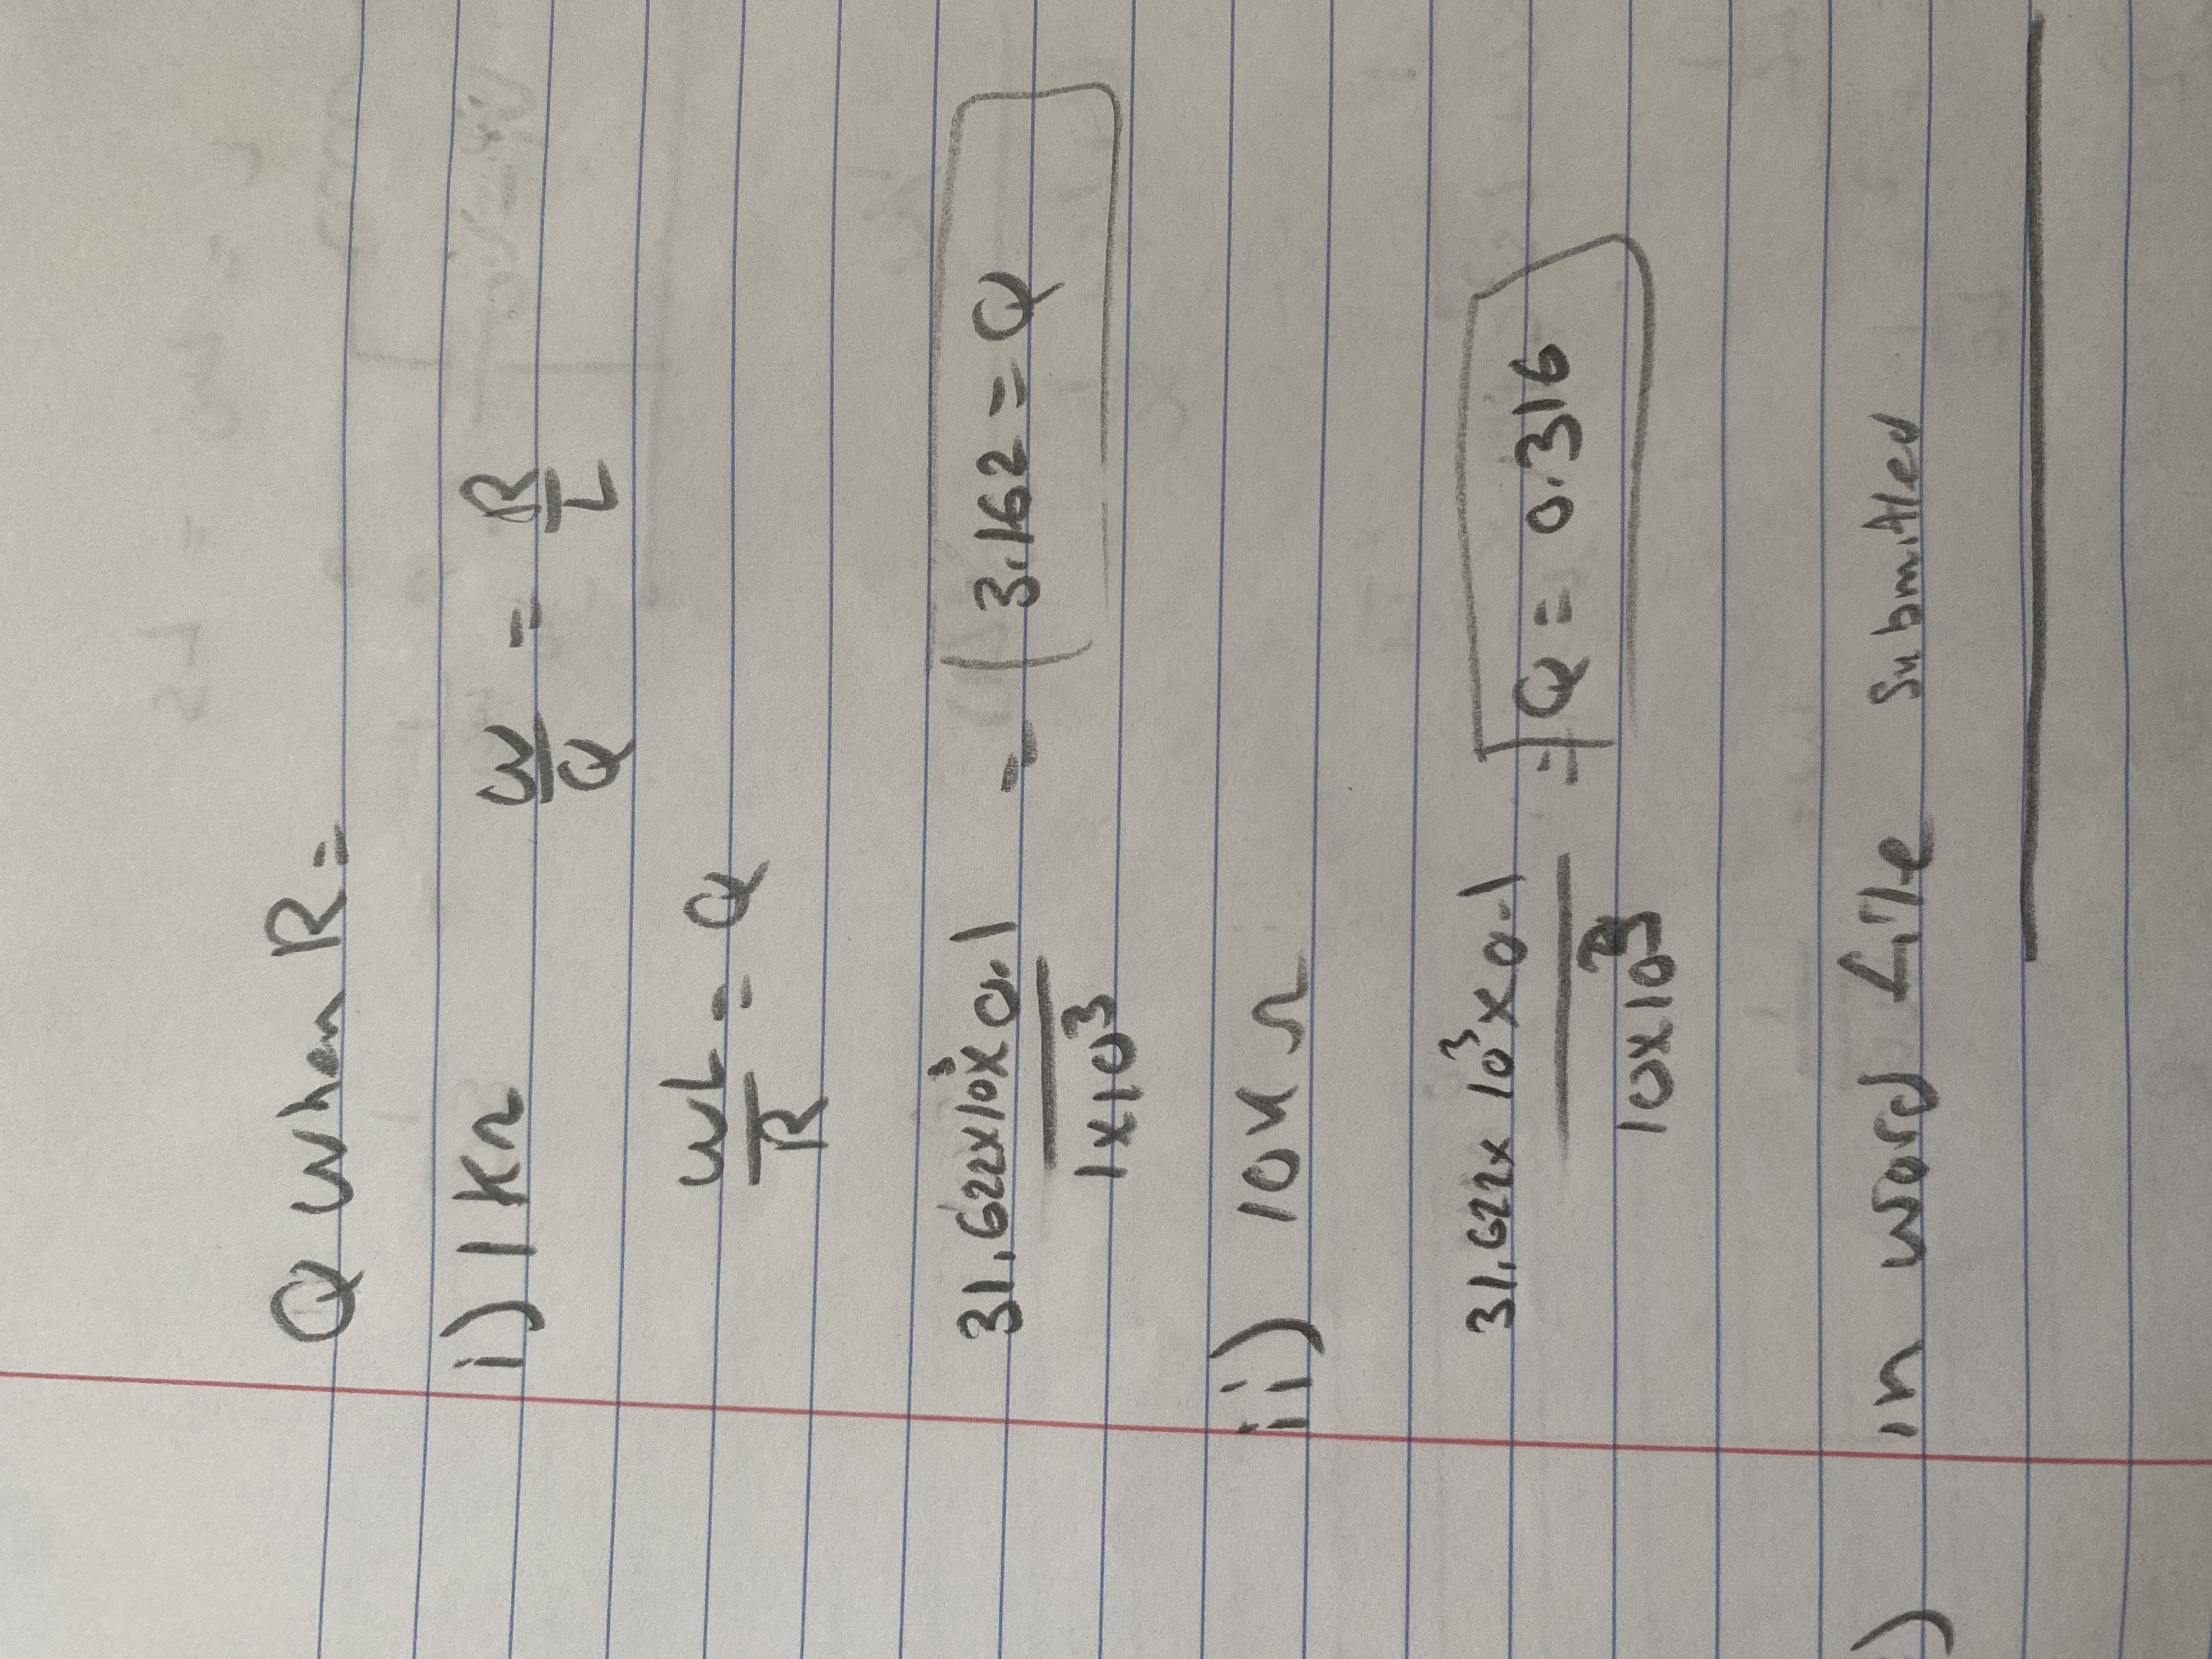 Q when R=
i) 1KΩ W/Q = R/L
WL/R = Q
31.622x10³x0.1 / 1x10³ = 3.162 = Q
ii) 10KΩ
31.622x 10³x0.1 / 10x10³ = Q = 0.316
) in word file submitted